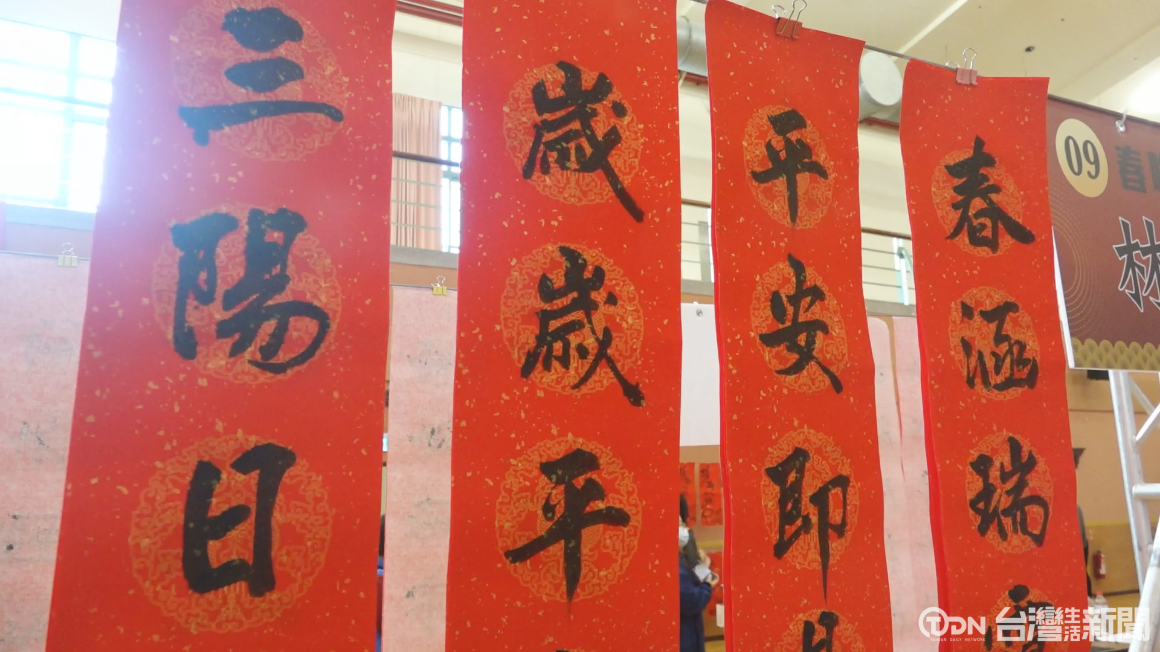 三陽日
歲歲平
平安即
春涵瑞
09
春
林
TDN 台灣生活新聞
TAIWAN DAILY NETWORK